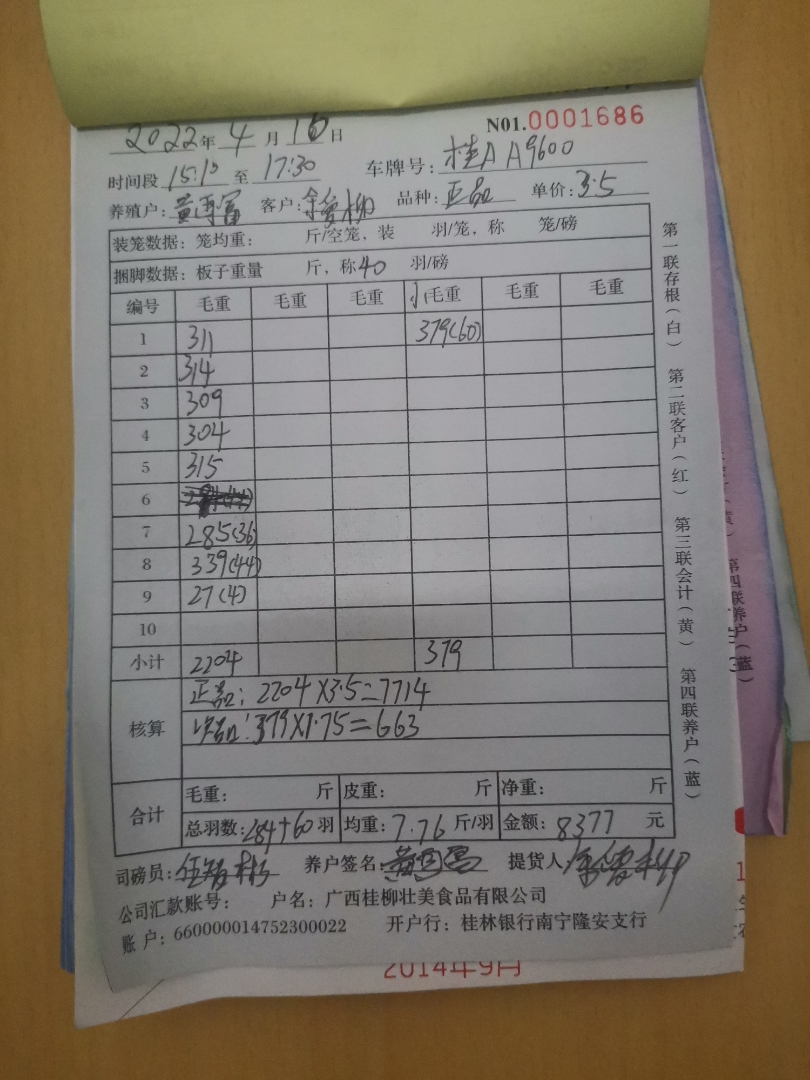 2022年 4 月 16 日 N01.0001686
时间段 15:10 至 17:30 车牌号: 桂A A9600
养殖户: 黄 富 客户: 柳 品种: 正品 单价: 3.5
装笼数据: 笼均重: 斤/空笼, 装 羽/笼, 称 笼/磅
捆脚数据: 板子重量 斤, 称40 羽/磅
编号 毛重 毛重 毛重 毛重 毛重 毛重
1 311 379(60)
2 314
3 309
4 304
5 315
6
7 285(36)
8 339(44)
9 27(4)
10
小计 2204 379
核算 正品: 2204×3.5=7714
次品: 379×1.75=663
合计 毛重: 斤 皮重: 斤 净重: 斤
总羽数: 284+60 羽 均重: 7.76 斤/羽 金额: 8377 元
司磅员: 养户签名: 提货人:
公司汇款账号: 户名: 广西桂柳壮美食品有限公司
账户: 660000014752300022 开户行: 桂林银行南宁隆安支行
第一联存根(白) 第二联客户(红) 第三联会计(黄) 第四联养户(蓝)
第四联养户(蓝)
2014年9月